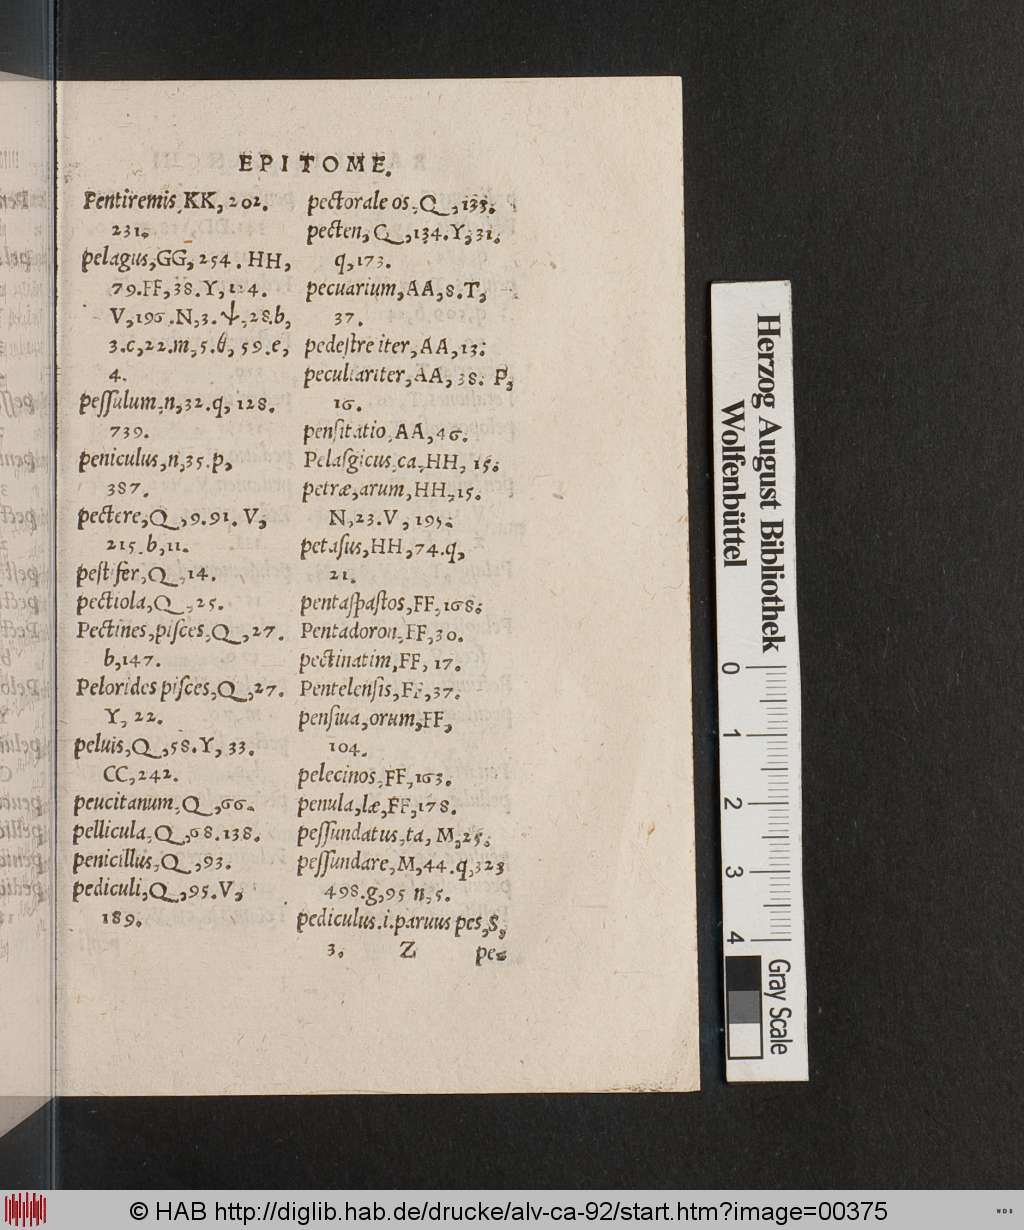 EPITOME.
Pentiremis, KK, 202.
231.
pelagus, GG, 254. HH,
79. FF, 38. Y, 124.
V, 196. N, 3. ψ, 28. b,
3. c, 22. m, 5. θ, 59. e,
4.
peſſulum, n, 32. q, 128.
739.
peniculus, n, 35. p,
387.
pectere, Q, 9. 91. V,
215. b, 11.
peſtifer, Q, 14.
pectiola, Q, 25.
Pectines, piſces, Q, 27.
b, 147.
Pelorides piſces, Q, 27.
Y, 22.
peluis, Q, 58. Y, 33.
CC, 242.
peucitanum, Q, 66.
pellicula, Q, 68. 138.
penicillus, Q, 93.
pediculi, Q, 95. V,
189.
pectorale os, Q, 133.
pecten, Q, 134. Y, 31.
q, 173.
pecuarium, AA, 8. T,
37.
pedeſtre iter, AA, 13.
peculiariter, AA, 38. P,
16.
penſitatio, AA, 46.
Pelaſgicus, ca, HH, 15.
petræ, arum, HH, 15.
N, 23. V, 195.
petaſus, HH, 74. q,
21.
pentaſpaſtos, FF, 168.
Pentadoron, FF, 30.
pectinatim, FF, 17.
Pentelenſis, FF, 37.
penſiua, orum, FF,
104.
pelecinos, FF, 163.
penula, læ, FF, 178.
peſſundatus, ta, M, 25.
peſſundare, M, 44. q, 323
498. g, 95 n, 5.
pediculus. i. paruus pes, S,
3. Z pe-
Herzog August Bibliothek
Wolfenbüttel
0 1 2 3 4
Gray Scale
© HAB http://diglib.hab.de/drucke/alv-ca-92/start.htm?image=00375
WDB